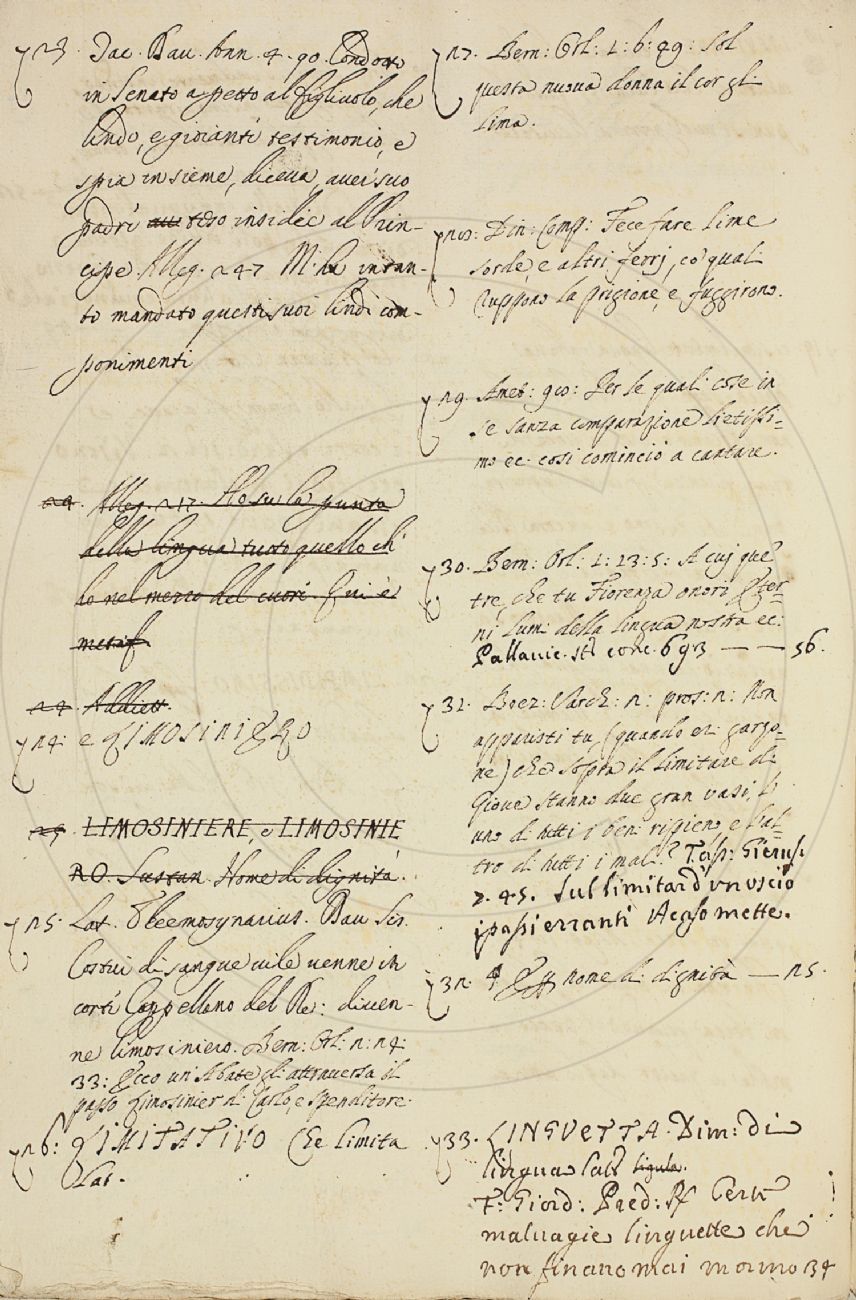 23. Dav. Ann. 4. 90. Condotto
in Senato a petto al figliuolo, che
lindo, e gioiante testimonio, e
spia insieme, diceua, auer suo
padre teso insidie al Prin-
cipe. Alleg. 247 M'ha intan-
to mandato questi suoi lindi com-
ponimenti
24. Alleg. 217. Ho su la punta
della lingua tutto quello ch'
ho nel mezzo del cuore. Qui è
metaf.
24. Addiett.
24: e LIMOSINIERO
25. LIMOSINIERE, e LIMOSINIE
RO. Sustan. Nome di dignità.
25. Lat. Eleemosynarius. Dav. Scis.
Costui di sangue uile uenne in
corte Cappellano del Re: diuen-
ne limosiniero. Bern: Orl: 2: 24:
33: Ecco un Abate gli attrauersa il
passo Limosinier di Carlo, e spenditore.
26: LIMITATIVO Che limita
Lat.
27. Bern: Orl: 1: 6: 49: Sol
questa nuoua donna il cor gli
lima.
28: Din: Comp: Fece fare lime
sorde, e altri ferrj, co' quali
ruppono la prigione, e fuggirono.
29. Amet: 90: Per le quali cose in
se sanza comparazione lietissi=
mo ec. così cominciò a cantare.
30. Bern: Orl: 1: 23: 5: A cuj que
tre, che tu Fiorenza onori Eter-
ni lumi della lingua nostra ec:
Pallauic. st. conc. 693 — — 56.
31. Boez: Varch: 2: pros: 2: Non
apparasti tu, (quando eri garzo=
ne) che sopra il limitare di
Gioue stanno due gran vasi, l'
uno di tutti i beni ripieno, e l'al-
tro di tutti i mali? Tass: Gierus.
7. 45. Sul limitar d'vn vscio
i passi erranti A caso mette.
32. nome di dignità — 25.
33. LINGVETTA. Dim: di
lingua Lat. ligula.
F: Giord: Pred: R Certe
maluagie linguette che
non finano mai 34